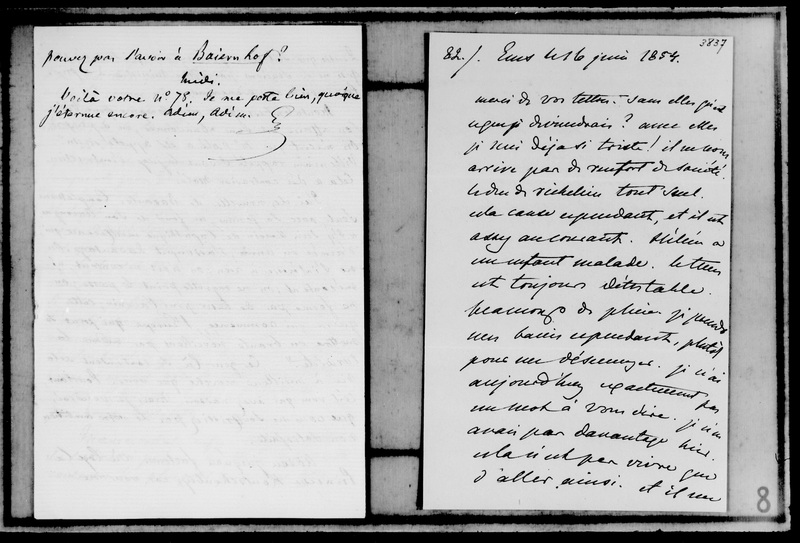 pouvez pas l'avoir à Baiernhof?
Midi.
Voilà votre n° 75. Je me porte bien, quoique
j'éternue encore. Adieu, Adieu.
3837
82./. Ems le 16 juin 1854.
merci de vos lettres. Sans elles qu'est
ce que je deviendrais? avec elles
je suis déja si triste! il ne nous
arrive pas de renfort de société.
le duc de richelieu tout seul.
cela cause cependant, et il est
assez au courant. Hélène a
un enfant malade. le tems
est toujours détestable.
beaucoup de pluie. je prends
mes bains cependant, plutôt
pour me désennuyer. je n'ai
aujourd'huy exactement pas
un mot à vous dire. je n'en
avais pas davantage hier.
cela n'est pas vivre que
d'aller ainsi. et il me
8